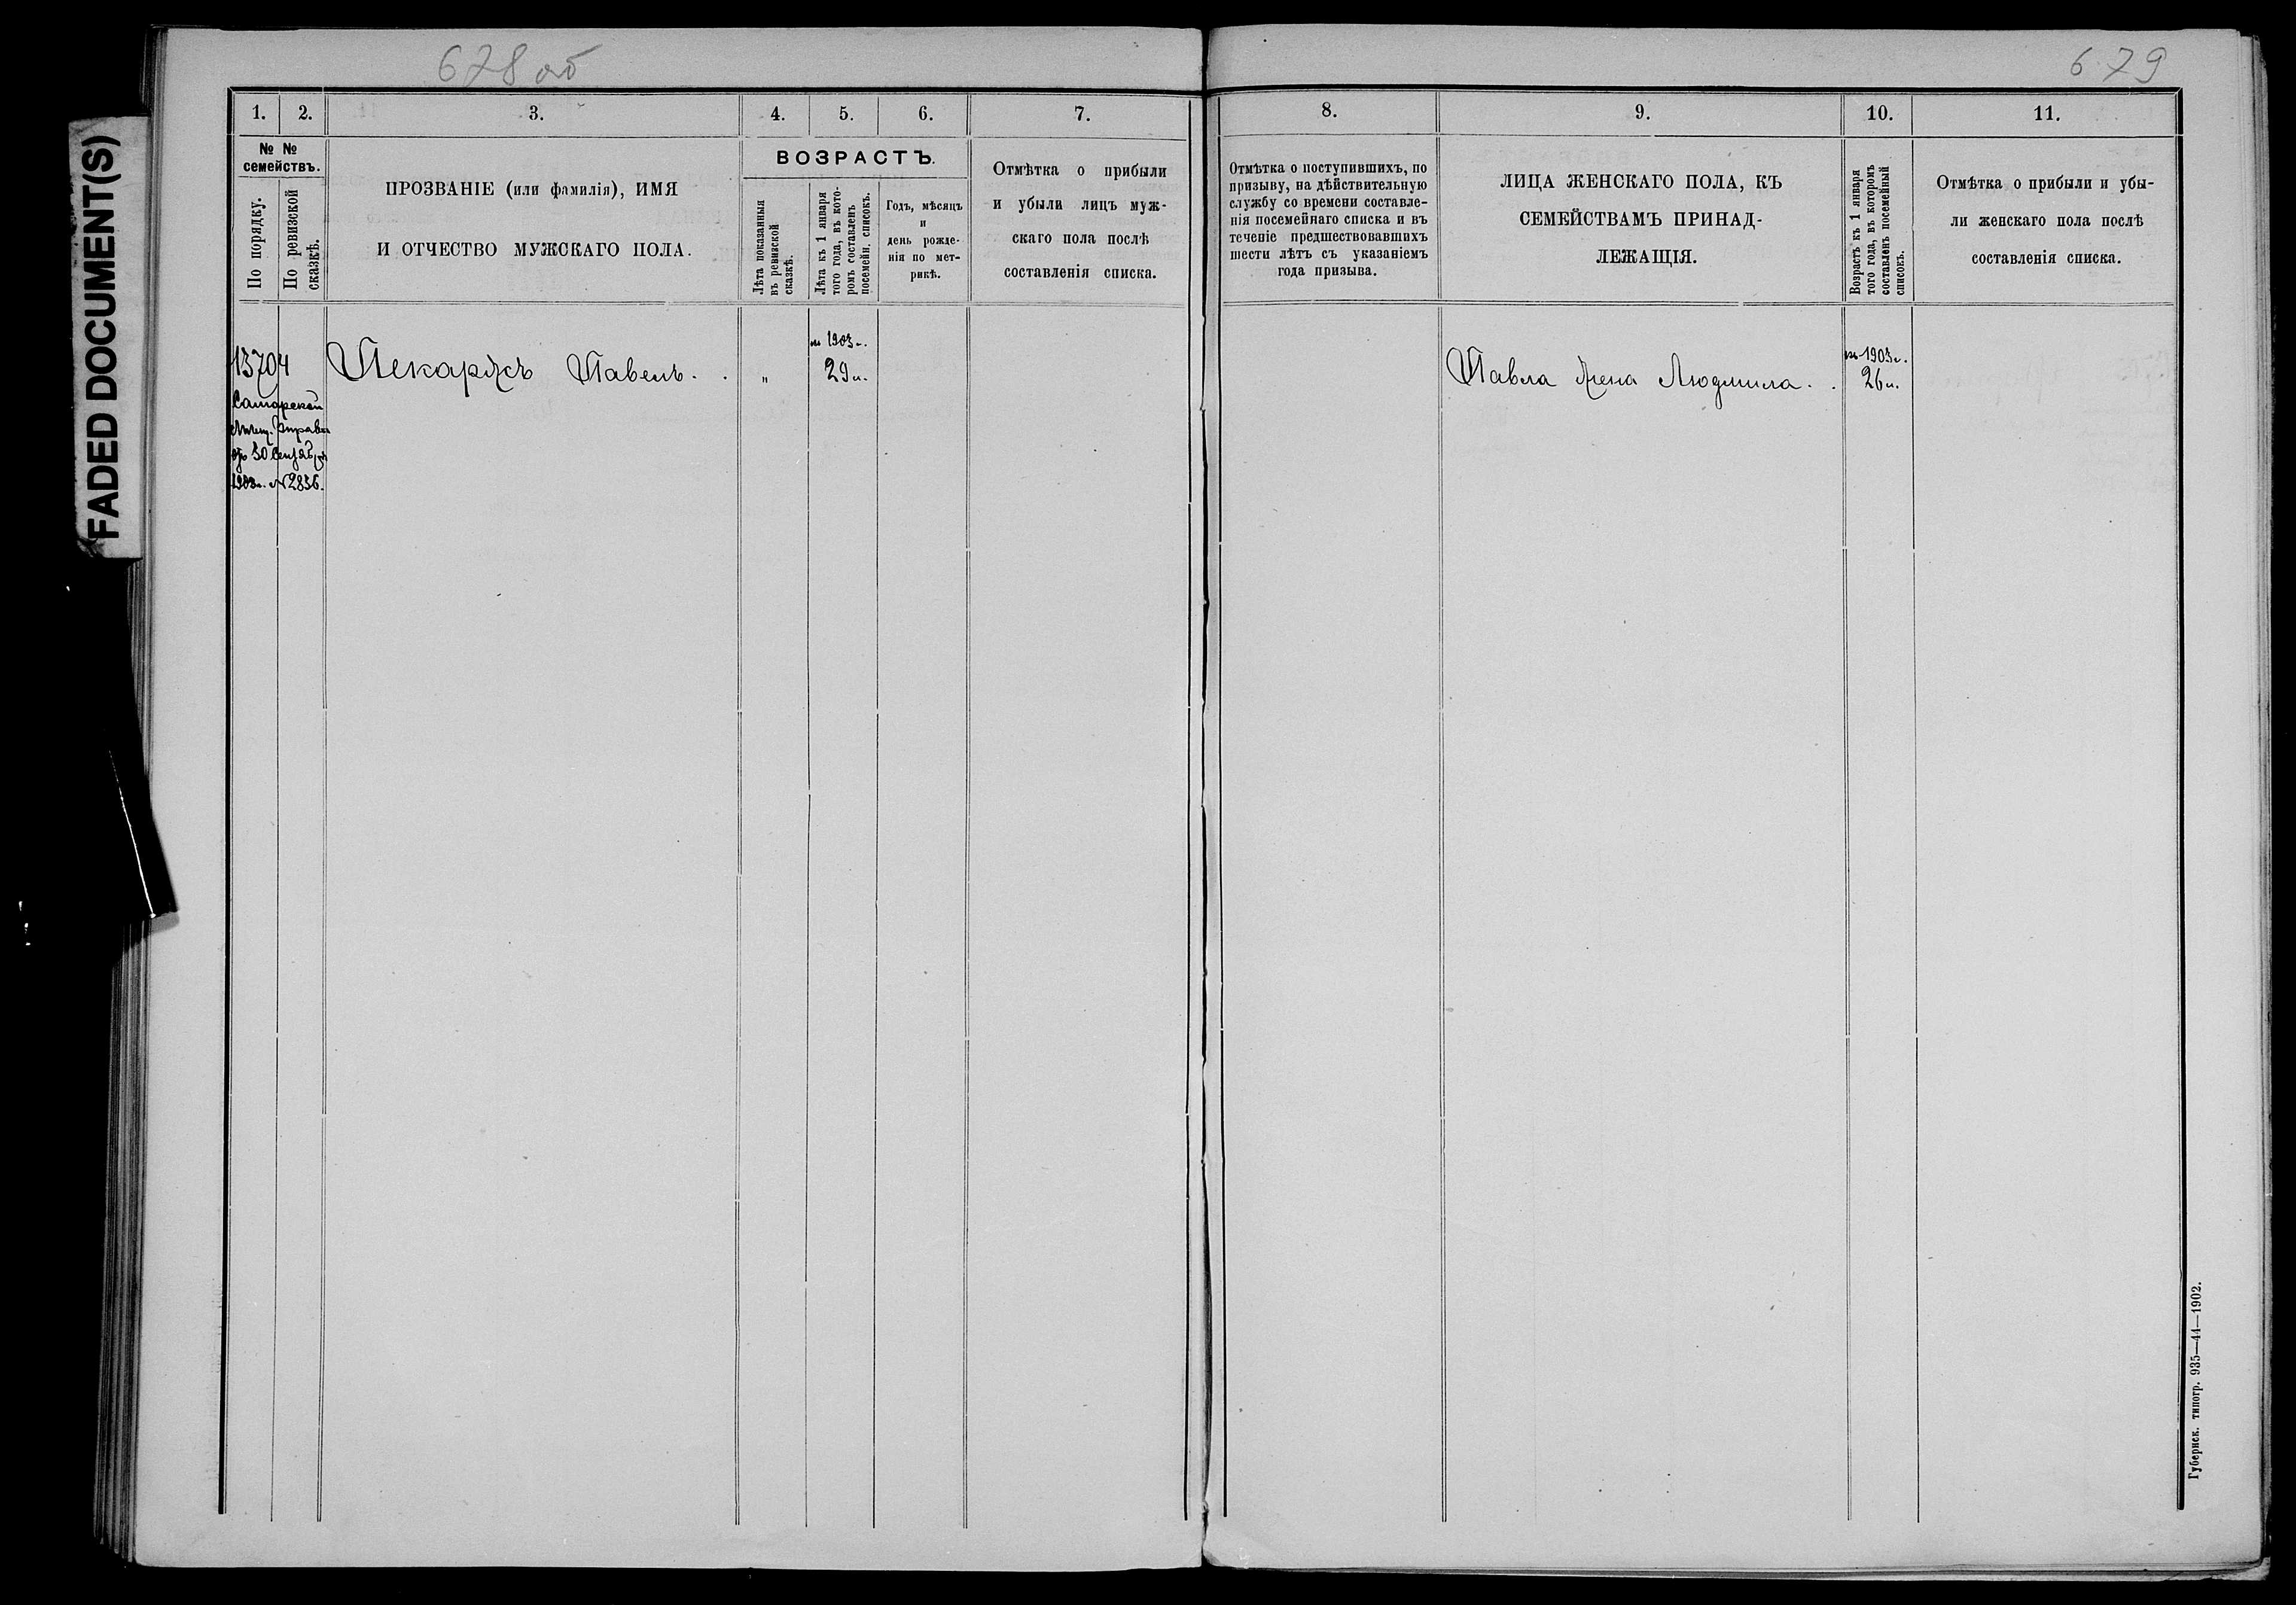 FADED DOCUMENT(S)
678 об
679
1.
2.
3.
4.
5.
6.
7.
№ №
семействъ.
По порядку.
По ревизской
сказкѣ.
ПРОЗВАНІЕ (или фамилія), ИМЯ
И ОТЧЕСТВО МУЖСКАГО ПОЛА.
ВОЗРАСТЪ.
Лѣта показанныя
въ ревизской
сказкѣ.
Лѣта къ 1 января
того года, въ кото-
ромъ составленъ
посемейн. списокъ.
Годъ, мѣсяцъ
и
день рожде-
нія по мет-
рикѣ.
Отмѣтка о прибыли
и убыли лицъ муж-
скаго пола послѣ
составленія списка.
8.
9.
10.
11.
Отмѣтка о поступившихъ, по
призыву, на дѣйствительную
службу со времени составле-
нія посемейнаго списка и въ
теченіе предшествовавшихъ
шести лѣтъ съ указаніемъ
года призыва.
ЛИЦА ЖЕНСКАГО ПОЛА, КЪ
СЕМЕЙСТВАМЪ ПРИНАД-
ЛЕЖАЩІЯ.
Возрастъ къ 1 января
того года, въ которомъ
составленъ посемейный
списокъ.
Отмѣтка о прибыли и убы-
ли женскаго пола послѣ
составленія списка.
13704
Самарской
Мѣщ. Управы
отъ 30 Сентября
1903г. №2836.
Павелъ.
"
1903г.
29л.
Павла жена Людмила.
1903г.
26л.
Губернск. типогр. 935—44—1902.